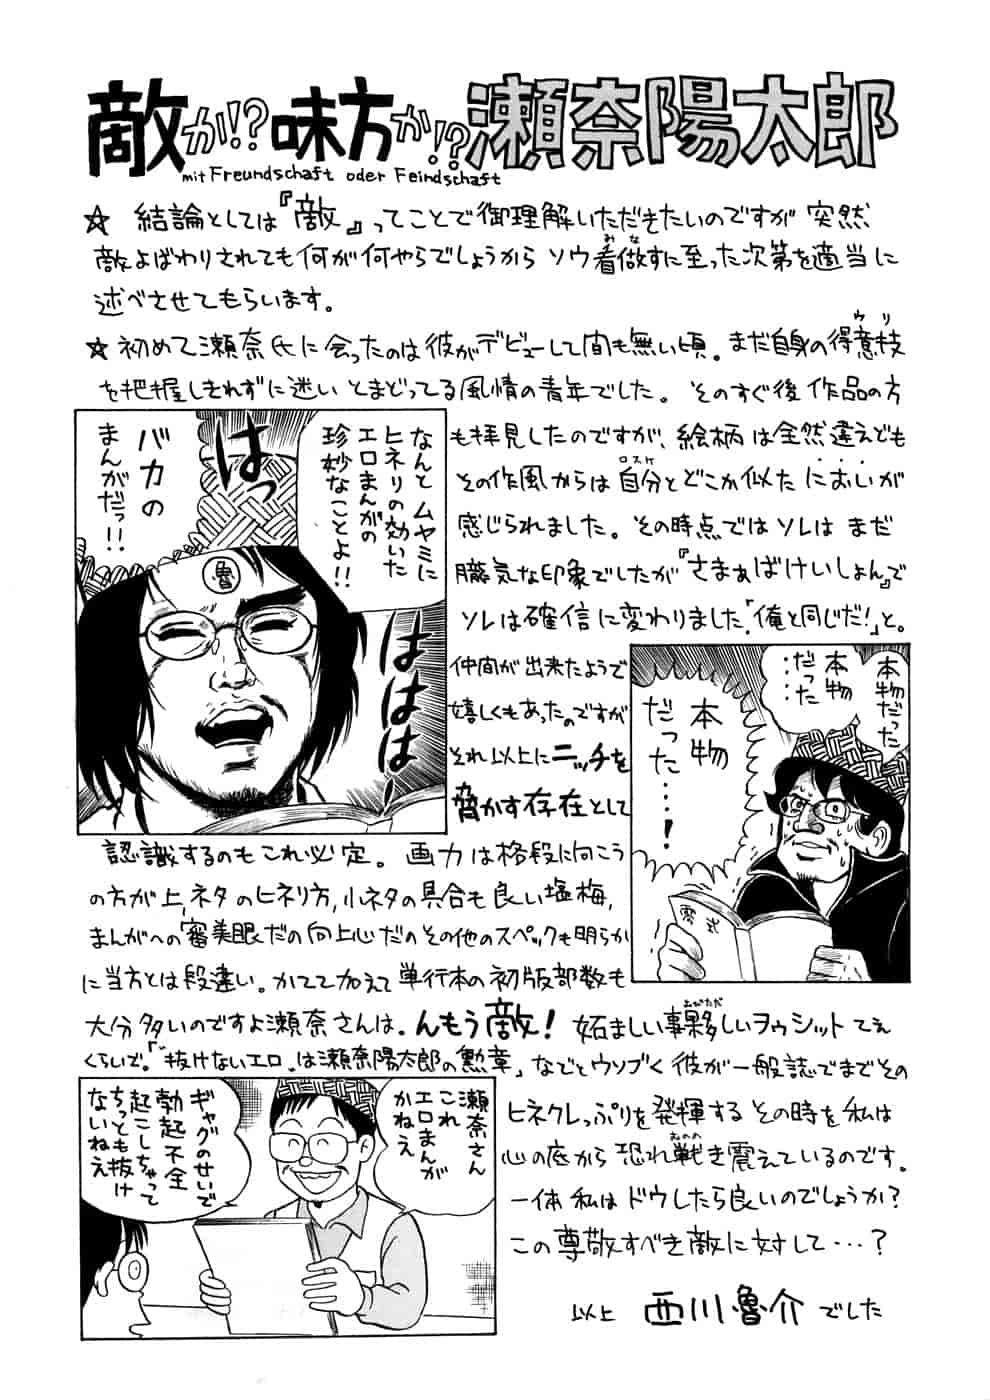 敵か!?味方か!?瀬奈陽太郎
mit Freundschaft oder Feindschaft
☆ 結論としては『敵』ってことで御理解いただきたいのですが 突然
敵よばわりされても何が何やらでしょうから ソウ看做すに至った次第を適当に
みな
述べさせてもらいます。
☆初めて瀬奈氏に会ったのは彼がデビューして間も無い頃。まだ自身の得意技
ウリ
を把握しきれずに迷い とまどってる風情の青年でした。 そのすぐ後 作品の方
も拝見したのですが、絵柄は全然違えども
その作風からは自分とどこか似た においが
ロスケ
感じられました。その時点ではソレはまだ
朧気な印象でしたが『さまぁばけいしょん』で
ソレは確信に変わりました「俺と同じだ!」と。
なんと ムヤミに
ヒネリの効いた
エロまんがの
珍妙なことよ!!
はっ
はははは
バカの
まんがだっ!!
魯
仲間が出来たようで
嬉しくもあったのですが
それ以上にニッチを
脅かす存在として
本物だった
本物
だった
……
本物
だった……!
零式
認識するのもこれ必定。 画力は格段に向こう
の方が上,ネタのヒネリ方,小ネタの具合も良い塩梅,
まんがへの審美眼だの向上心だのその他のスペックも明らか
に当方とは段違い。かてて加えて単行本の初版部数も
大分多いのですよ瀬奈さんは。んもう敵! 妬ましい事夥しいヲゥシットてえ
おびただ
くらいで。「"抜けないエロ"は瀬奈陽太郎の勲章」などとウソブく彼が一般誌でまでその
ヒネクレっぷりを発揮するその時を私は
心の底から恐れ戦き震えているのです。
おのの
一体私はドウしたら良いのでしょうか?
この尊敬すべき敵に対して…?
瀬奈さん
これ
エロまんが
かねえ
ギャグのせいで
勃起不全
起こしちゃって
ちっとも抜け
ないねえ
以上 西川魯介でした